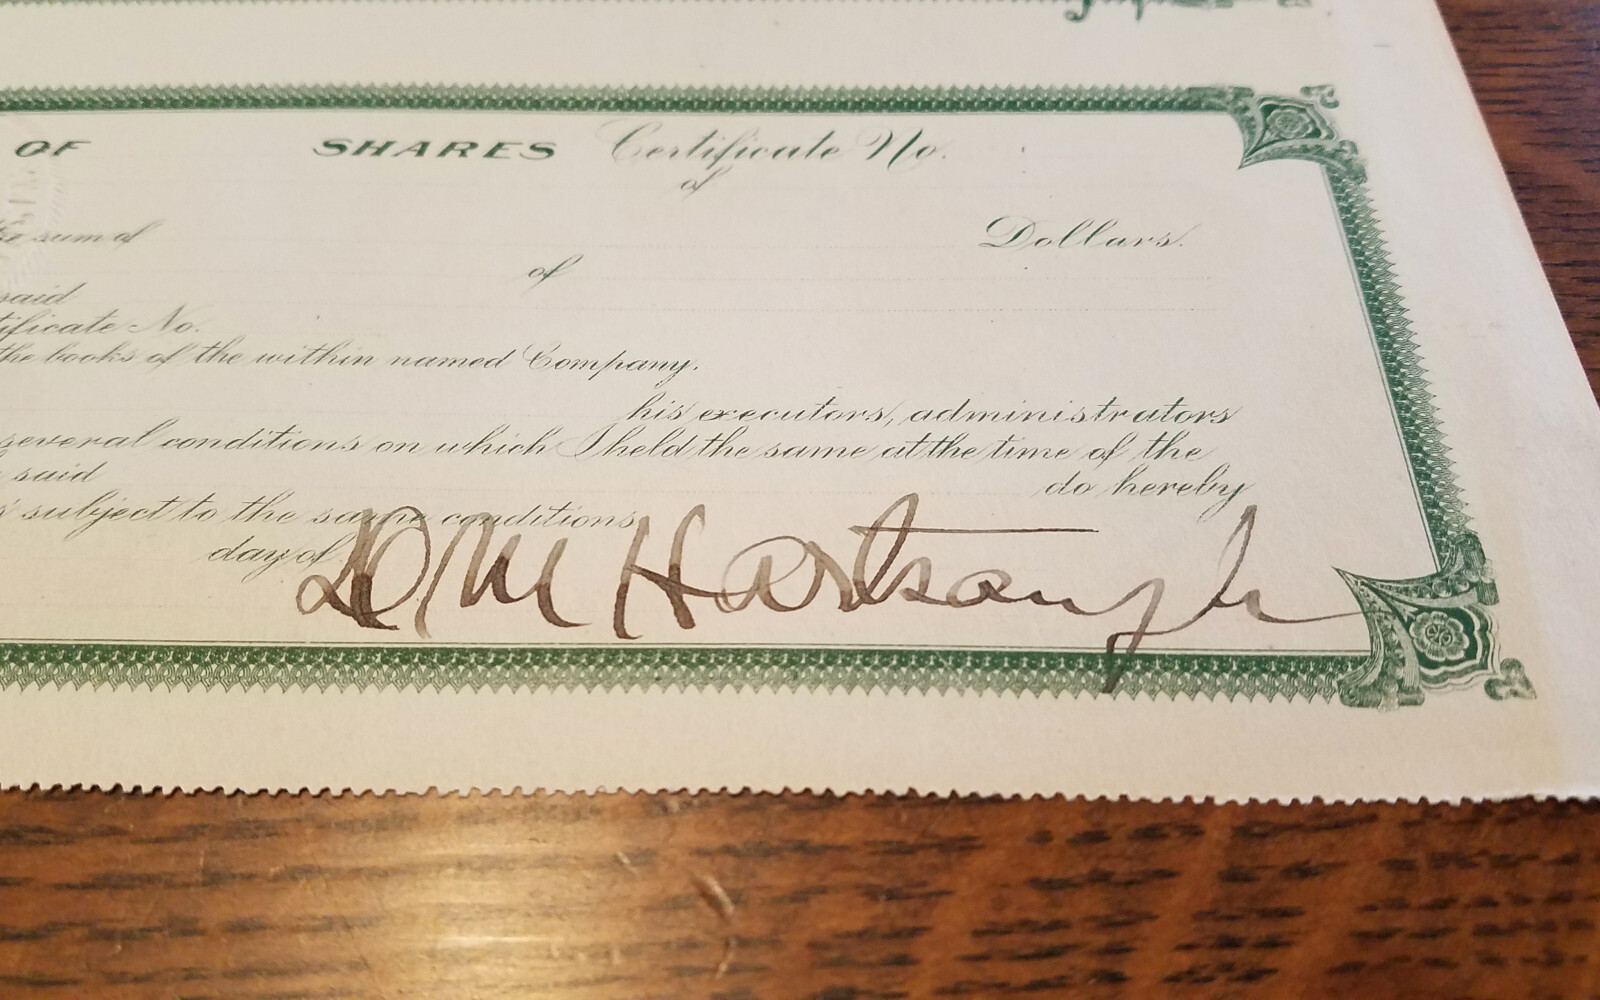 OF SHARES Certificate No.
of
the sum of Dollars.
of
said
tificate No.
the books of the within named Company.
his executors, administrators
several conditions on which I held the same at the time of the
said do hereby
subject to the same conditions
day of
D M Hartsough